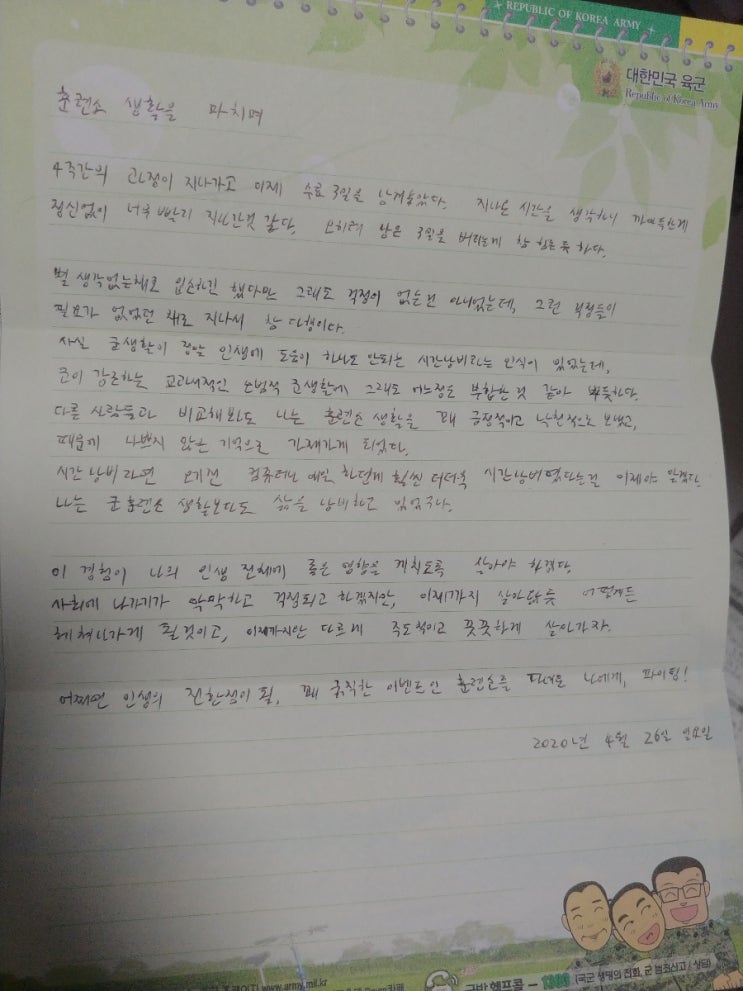 REPUBLIC OF KOREA ARMY
대한민국 육군
Republic of Korea Army
훈련소 생활을 마치며
4주간의 과정이 지나가고 이제 수료 3일을 남겨놓았다. 지나온 시간을 생각하니 까마득한게
정신없이 너무 빨리 지나간것 같다. 오히려 남은 3일을 버티는게 참 힘든 듯 하다.
별 생각없는채로 입소하긴 했다만 그래도 걱정이 없는건 아니었는데, 그런 걱정들이
필요가 없었던 채로 지나서 참 다행이다.
사실 군생활이 정말 인생에 도움이 하나도 안되는 시간낭비라는 인식이 있었는데,
군이 강조하는 교과서적인 모범적 군생활에 그래도 어느정도 부합한 것 같아 뿌듯하다.
다른 사람들과 비교해봐도 나는 훈련소 생활을 꽤 긍정적이고 낙천적으로 보냈고,
때문에 나쁘지 않은 기억으로 가져가게 되었다.
시간낭비라면 오기전 컴퓨터나 매일 하던게 훨씬 더더욱 시간낭비였다는걸 이제야 알겠다.
나는 군 훈련소 생활보다도 삶을 낭비하고 있었구나.
이 경험이 나의 인생 전체에 좋은 영향을 끼치도록 살아야 하겠다.
사회에 나가기가 막막하고 걱정되고 하겠지만, 이제까지 살아왔듯 어떻게든
헤쳐나가게 될것이고, 이제까지완 다르게 주도적이고 꿋꿋하게 살아가자.
어쩌면 인생의 전환점이 될, 꽤 굵직한 이벤트인 훈련소를 다녀온 나에게, 파이팅!
2020년 4월 26일 일요일
www.army.mil.kr
국방헬프콜 - 1303 (국군 생명의 전화, 군 범죄신고 / 상담)